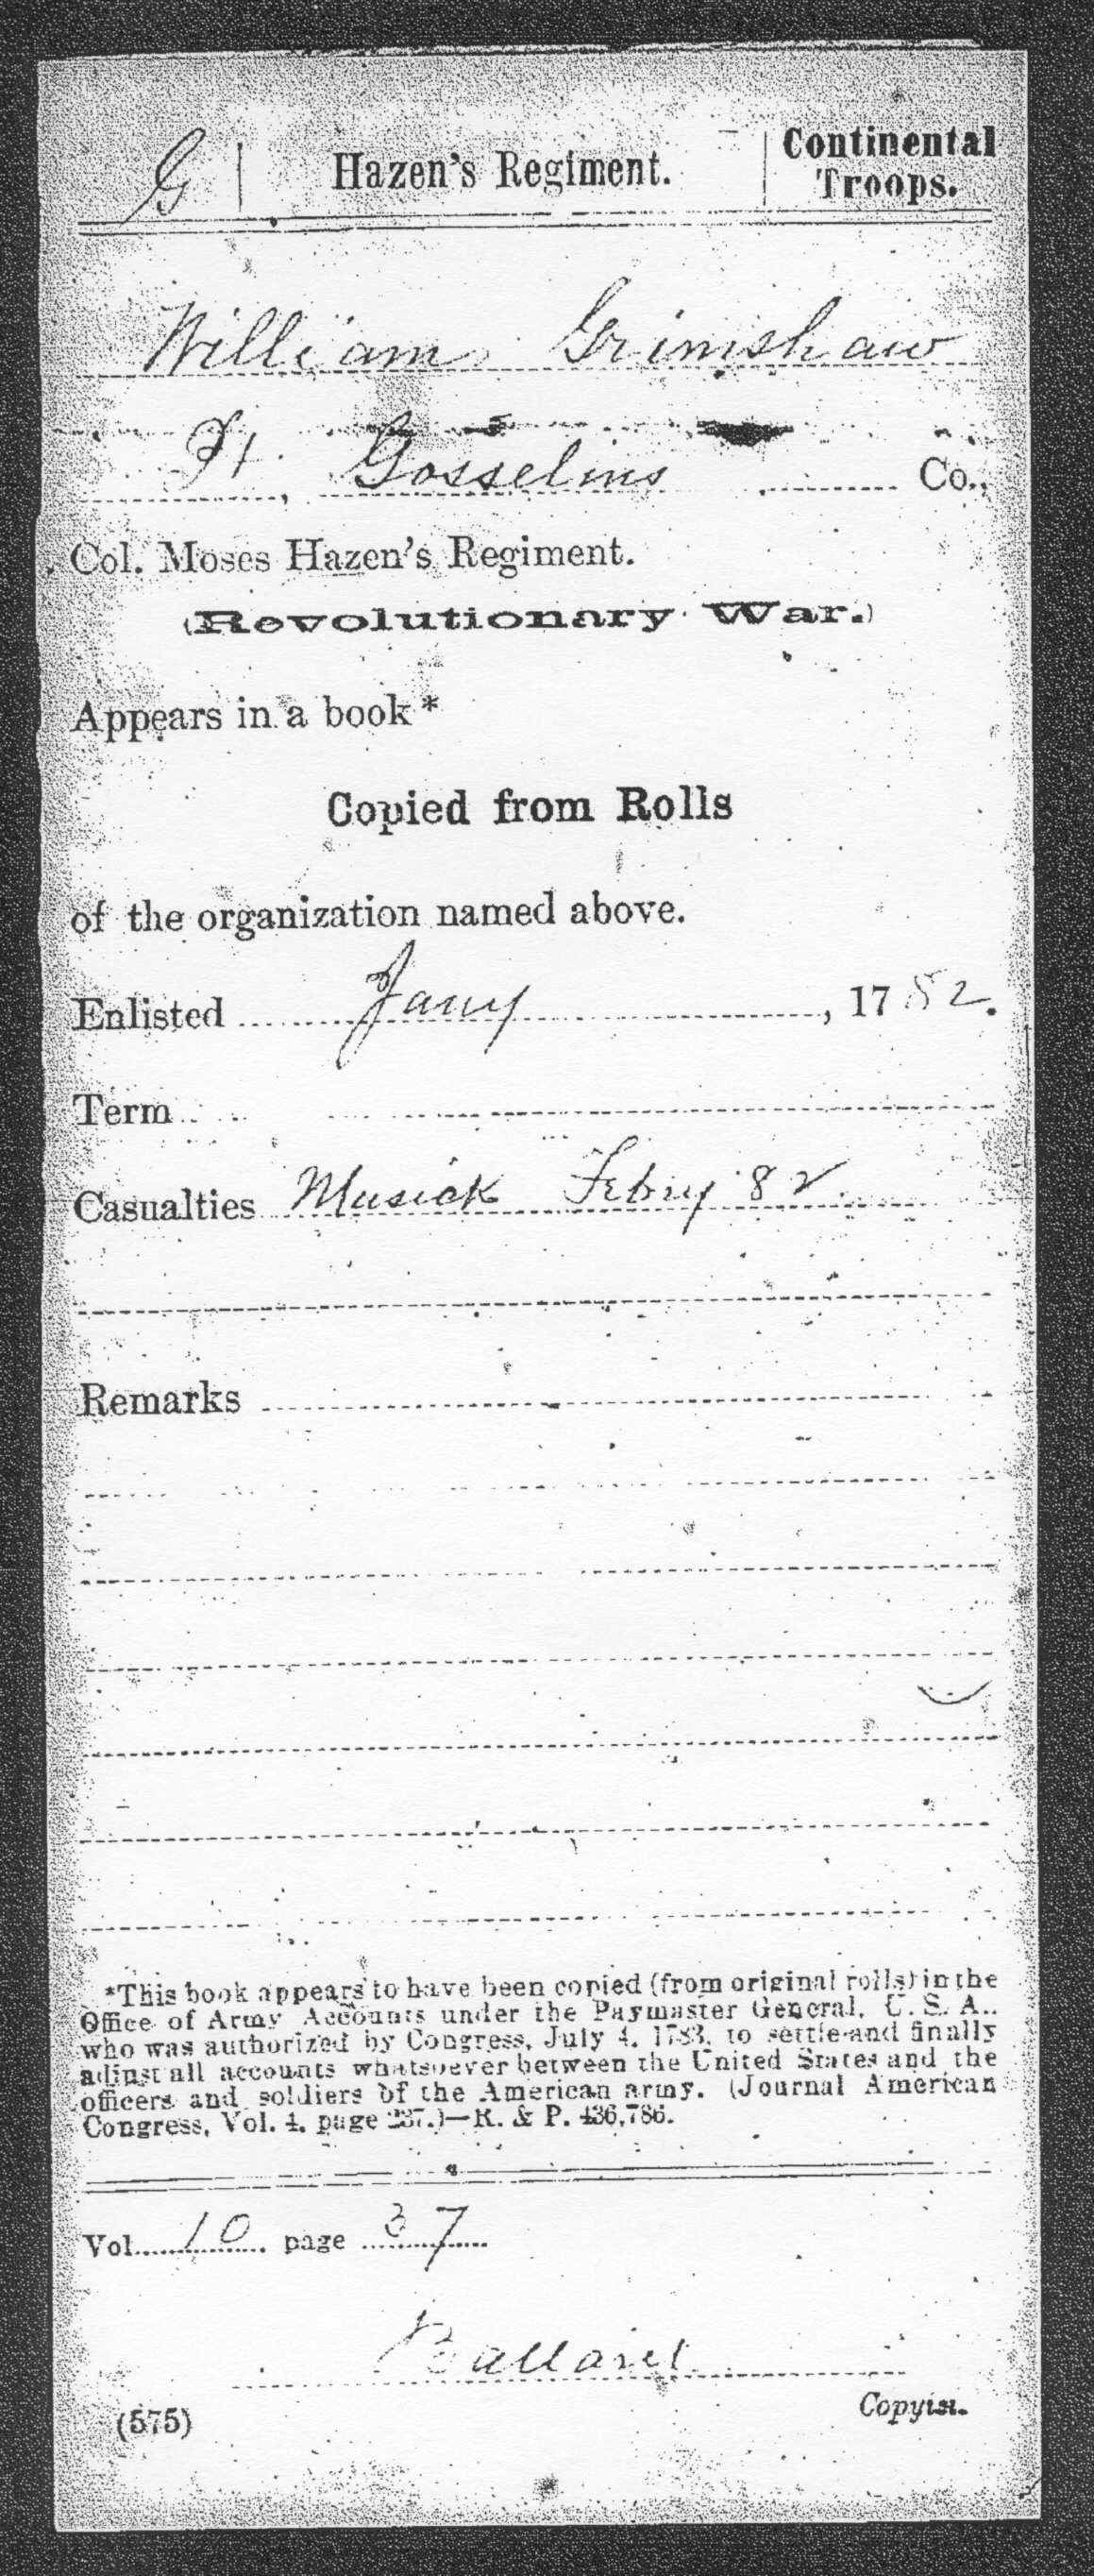 G | Hazen's Regiment. | Continental Troops.
William Grimshaw
Gosselins Co.,
Col. Moses Hazen's Regiment.
(Revolutionary War.)
Appears in a book*
Copied from Rolls
of the organization named above.
Enlisted Jany, 1782.
Term
Casualties Musick Febry 82
Remarks
*This book appears to have been copied (from original rolls) in the
Office of Army Accounts under the Paymaster General, U. S. A.,
who was authorized by Congress, July 4, 1783, to settle and finally
adjust all accounts whatsoever between the United States and the
officers and soldiers of the American army. (Journal American
Congress, Vol. 4, page 237.)—R. & P. 436,786.
Vol. 10 page 37
Ballard
(575) Copyist.